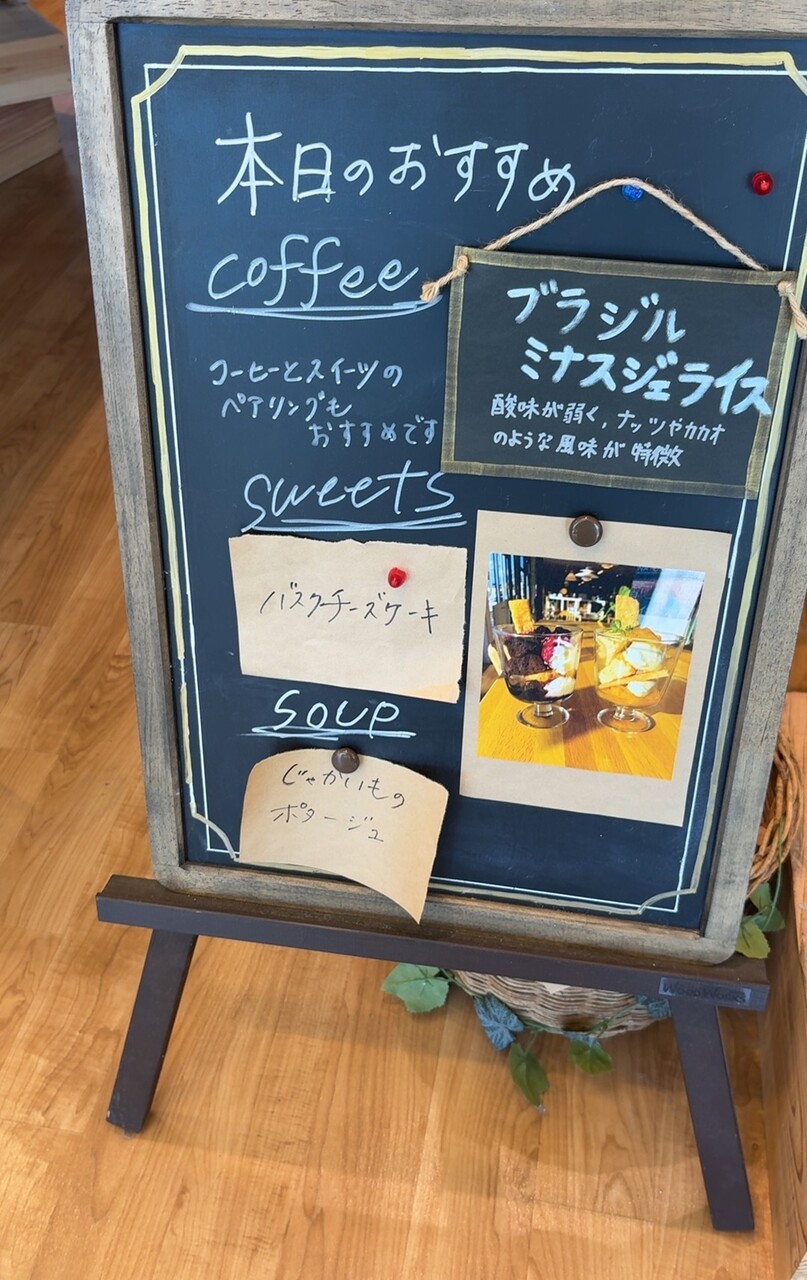 本日のおすすめ
coffee
ブラジル
ミナスジェライス
酸味が弱く,ナッツやカカオ
のような風味が特徴
コーヒーとスイーツの
ペアリングも
おすすめです
sweets
バスクチーズケーキ
soup
じゃがいもの
ポタージュ